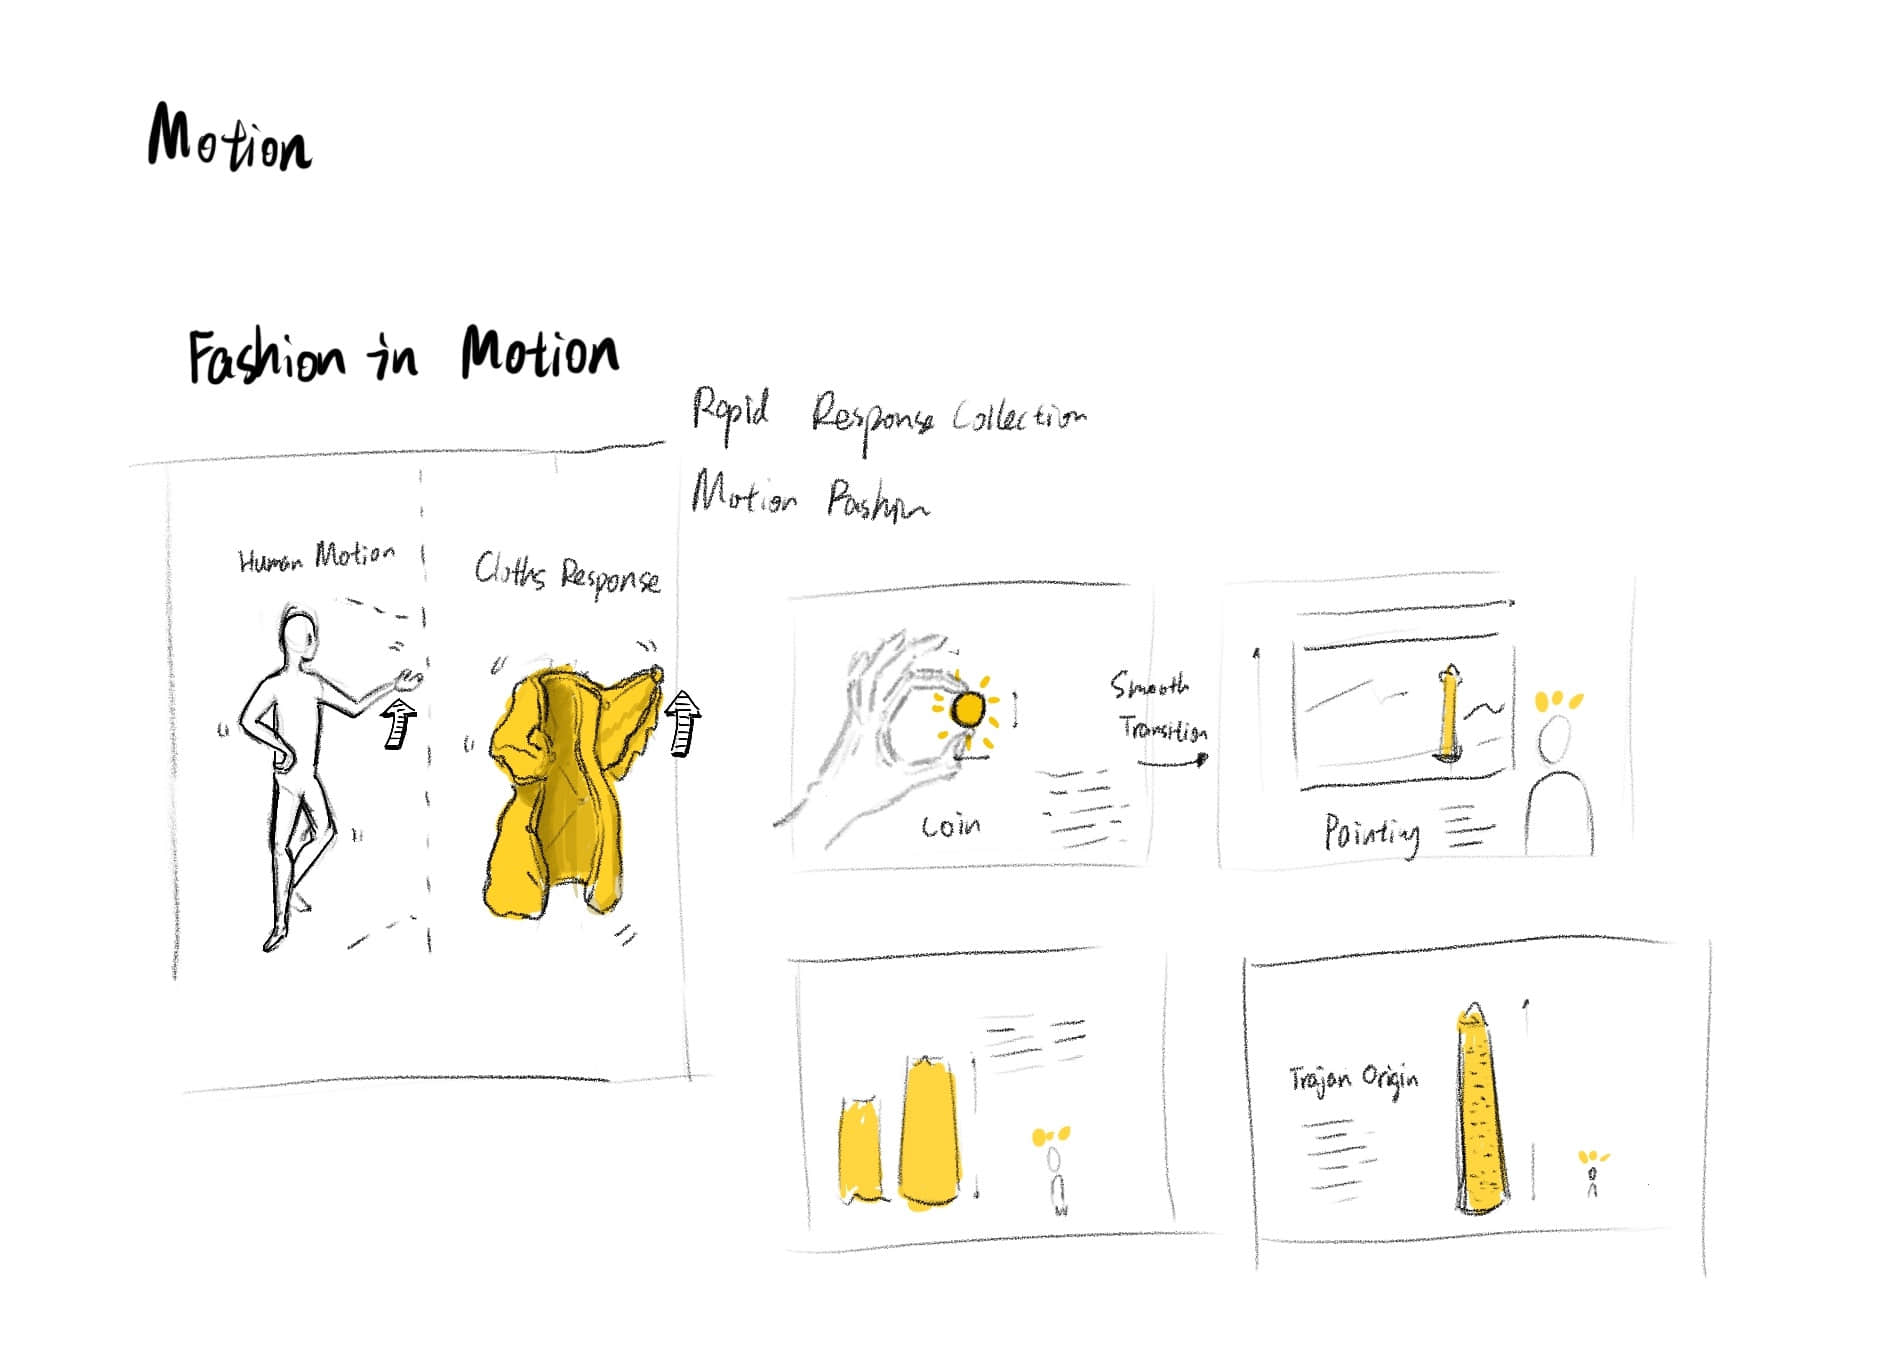 Motion
Fashion in Motion
Rapid Response Collection
Motion Fashion
Human Motion
Cloths Response
Coin
Smooth
Transition
Painting
Trajan Origin